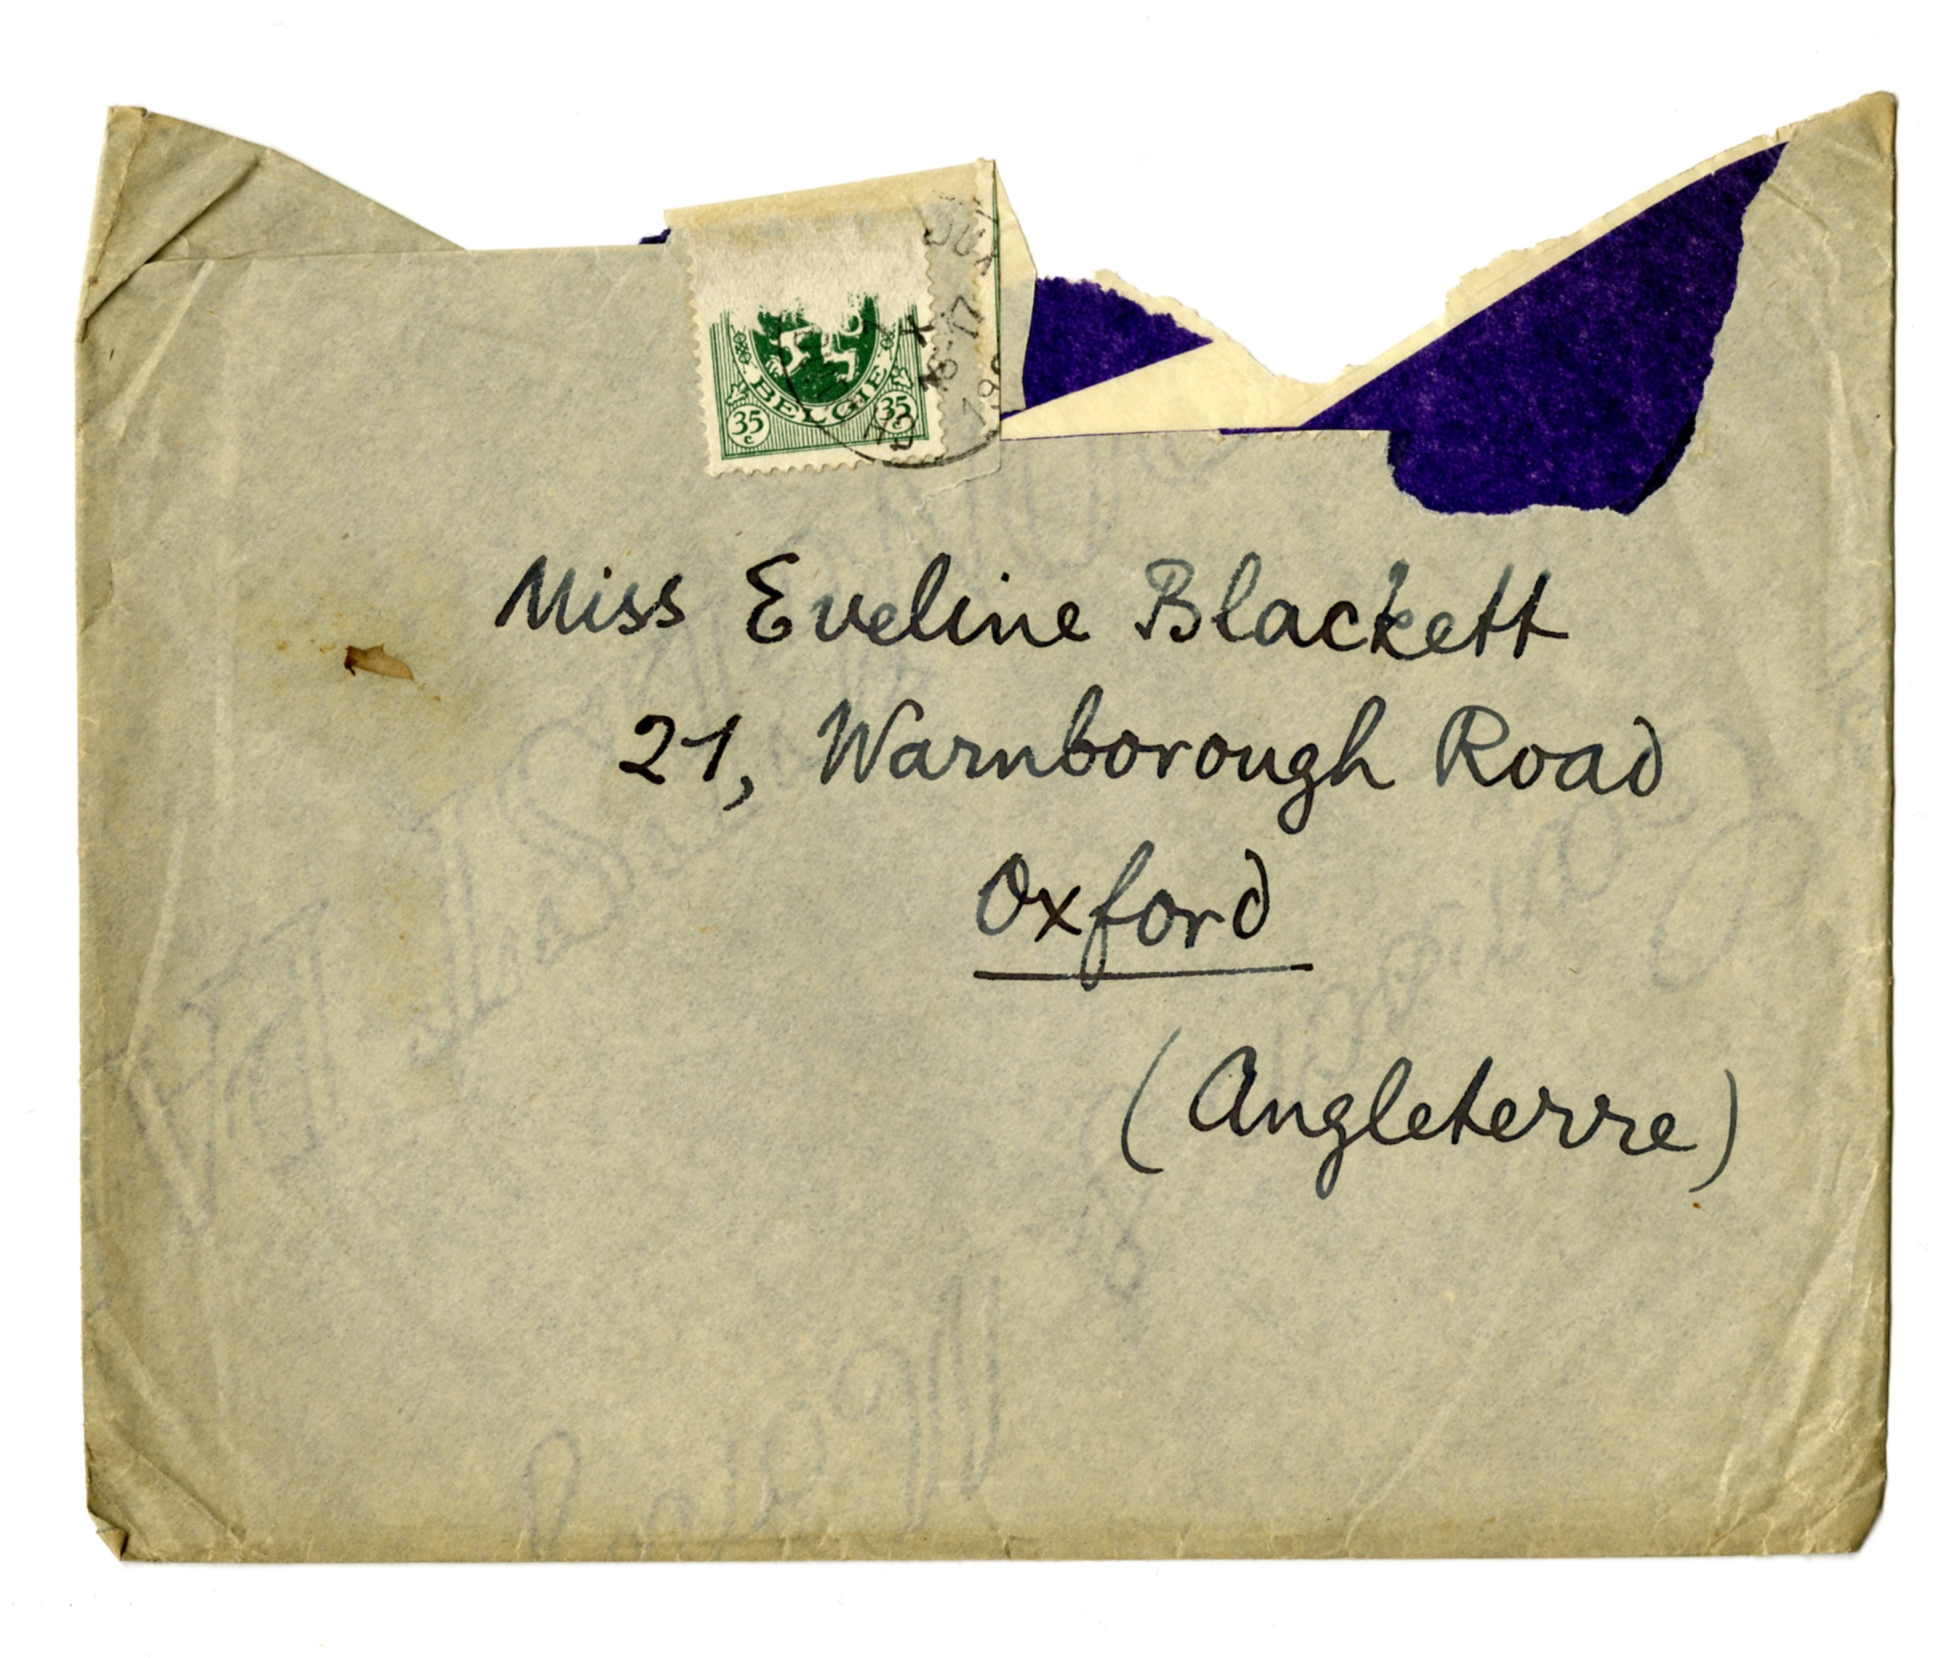 BELGIE
35 c 35 c
Miss Eveline Blackett
21, Warnborough Road
Oxford
(Angleterre)